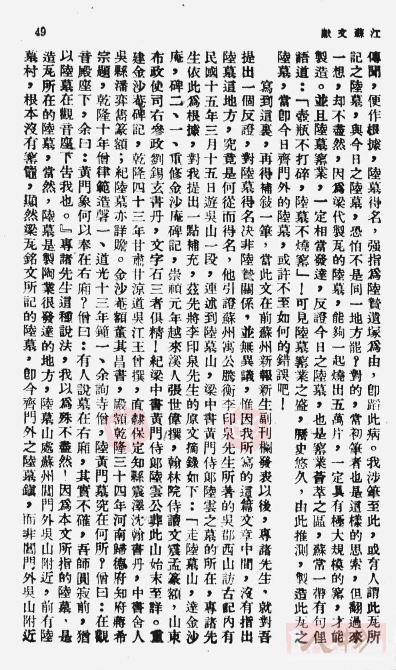 江蘇文獻
49
傳聞，便作根據，陸墓得名，强指爲陸贄遺塚爲由，卽蹈此病。我涉筆至此，或有人謂此瓦所
記之陸墓，與今日之陸墓，恐怕不是同一地方罷？對的，當初筆者也是這樣的思索，但翻過來
一想，却不盡然，因爲梁代製瓦的陸墓，能夠一起燒出五萬片，一定具有極大規模的窰，才能
製造。並且陸墓窰業，一定相當發達，反證今日之陸墓，也是窰業薈萃之區，蘇常一帶有句俚
語道：「壺瓶不打碎，陸墓不燒窰」！可見陸墓窰業之盛，歷史悠久，由此推測，製造此瓦之
陸墓，當卽今日齊門外的陸墓，或許不至如何的錯誤吧！
寫到這裏，再得補敍一筆，當此文在前蘇州新報新生副刊欄發表以後，專諸先生，就對吾
提出一個反證，對陸墓得名決非陸贄關係，並無異議，惟因我所寫的這篇文章中間，沒有指出
陸墓這地方，究竟是何從而得名，他引證蘇州寓公騰衝李印泉先生所著的吳郡西山訪古記內有
民國十五年三月十五日遊吳山一段，連述到陸墓山，梁中書黃門侍郎陸雲之墓的所在，專諸先
生依此爲根據，對我提出一點補充，茲先將李印泉先生的原文摘錄如下：「走陸墓山，達金沙
庵，碑二，一、重修金沙庵碑記，崇禎元年越來溪人張世偉撰，翰林院侍讀文震孟篆額，山東
布政使司右參政劉錫玄書丹，文字石三者俱精！紀梁中書黃門侍郎陸雲公葬此山始末至詳。重
建金沙菴碑記，乾隆四十三年甘肅甘涼道吳江王曾撰，直隸保定知縣震澤沈翰書丹，中書舍人
吳縣潘奕雋篆額；紀陸墓亦詳贍。金沙菴額董其昌書，殿額乾隆三十四年河南歸德府知府蔣希
宗題，乾隆十年僧律範造磬一、道光十三年鐘一、余詢寺僧，陸黃門墓究在何所？僧曰：在觀
音殿座下，余曰：黃門象何以奉在右廂？僧曰：有人說墓在右廂，其實不確，吾師圓寂前，猶
以陸墓在觀音座下告我也。』專諸先生這種說法，我以爲殊不盡然！因爲本文所指的陸墓，是
造瓦所在的陸墓，當然，陸墓是製陶業很發達的地方，陸墓山處蘇州閶門外吳山附近，前有陸
墓村，根本沒有窰竈，顯然梁瓦銘文所記的陸墓，卽今齊門外之陸墓鎮，而非閶門外吳山附近